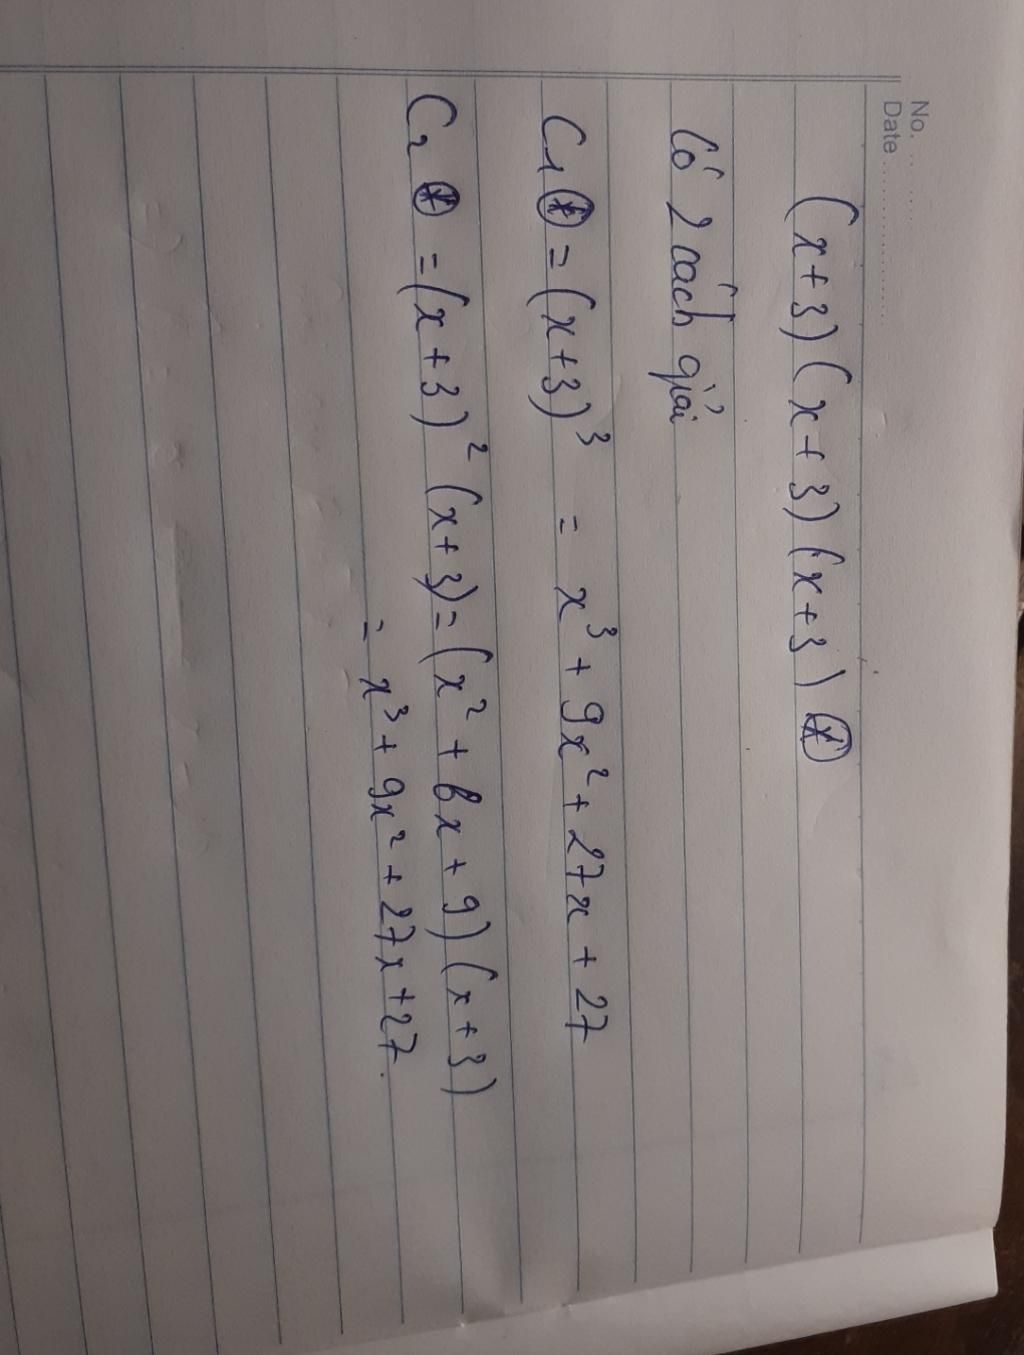 No. ..........
Date ....................
(x+3)(x+3)(x+3) ⊛
Có 2 cách giải
C₁ ⊛ = (x+3)³ = x³ + 9x² + 27x + 27
C₂ ⊛ = (x+3)² (x+3) = (x² + 6x + 9) (x+3)
= x³ + 9x² + 27x + 27.